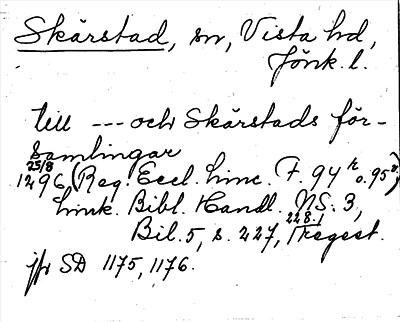 Skärstad, sn, Vista hd,
Jönk. l.
till --- och Skärstads för-
samlingar
25/8
1296, (Reg. Eccl. Linc. F. 94 r o. 95 v.),
Link. Bibl. Handl. NS: 3,
Bil. 5, s. 227, 228. 1 regest.
jfr SD 1175, 1176.